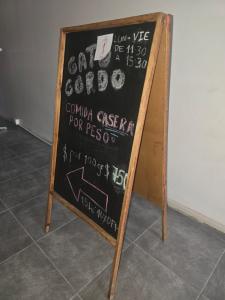 GATO
GORDO
LUN A VIE
DE 11:30
A 15:30
COMIDA CASERA
POR PESO
$ por 100g $ 750